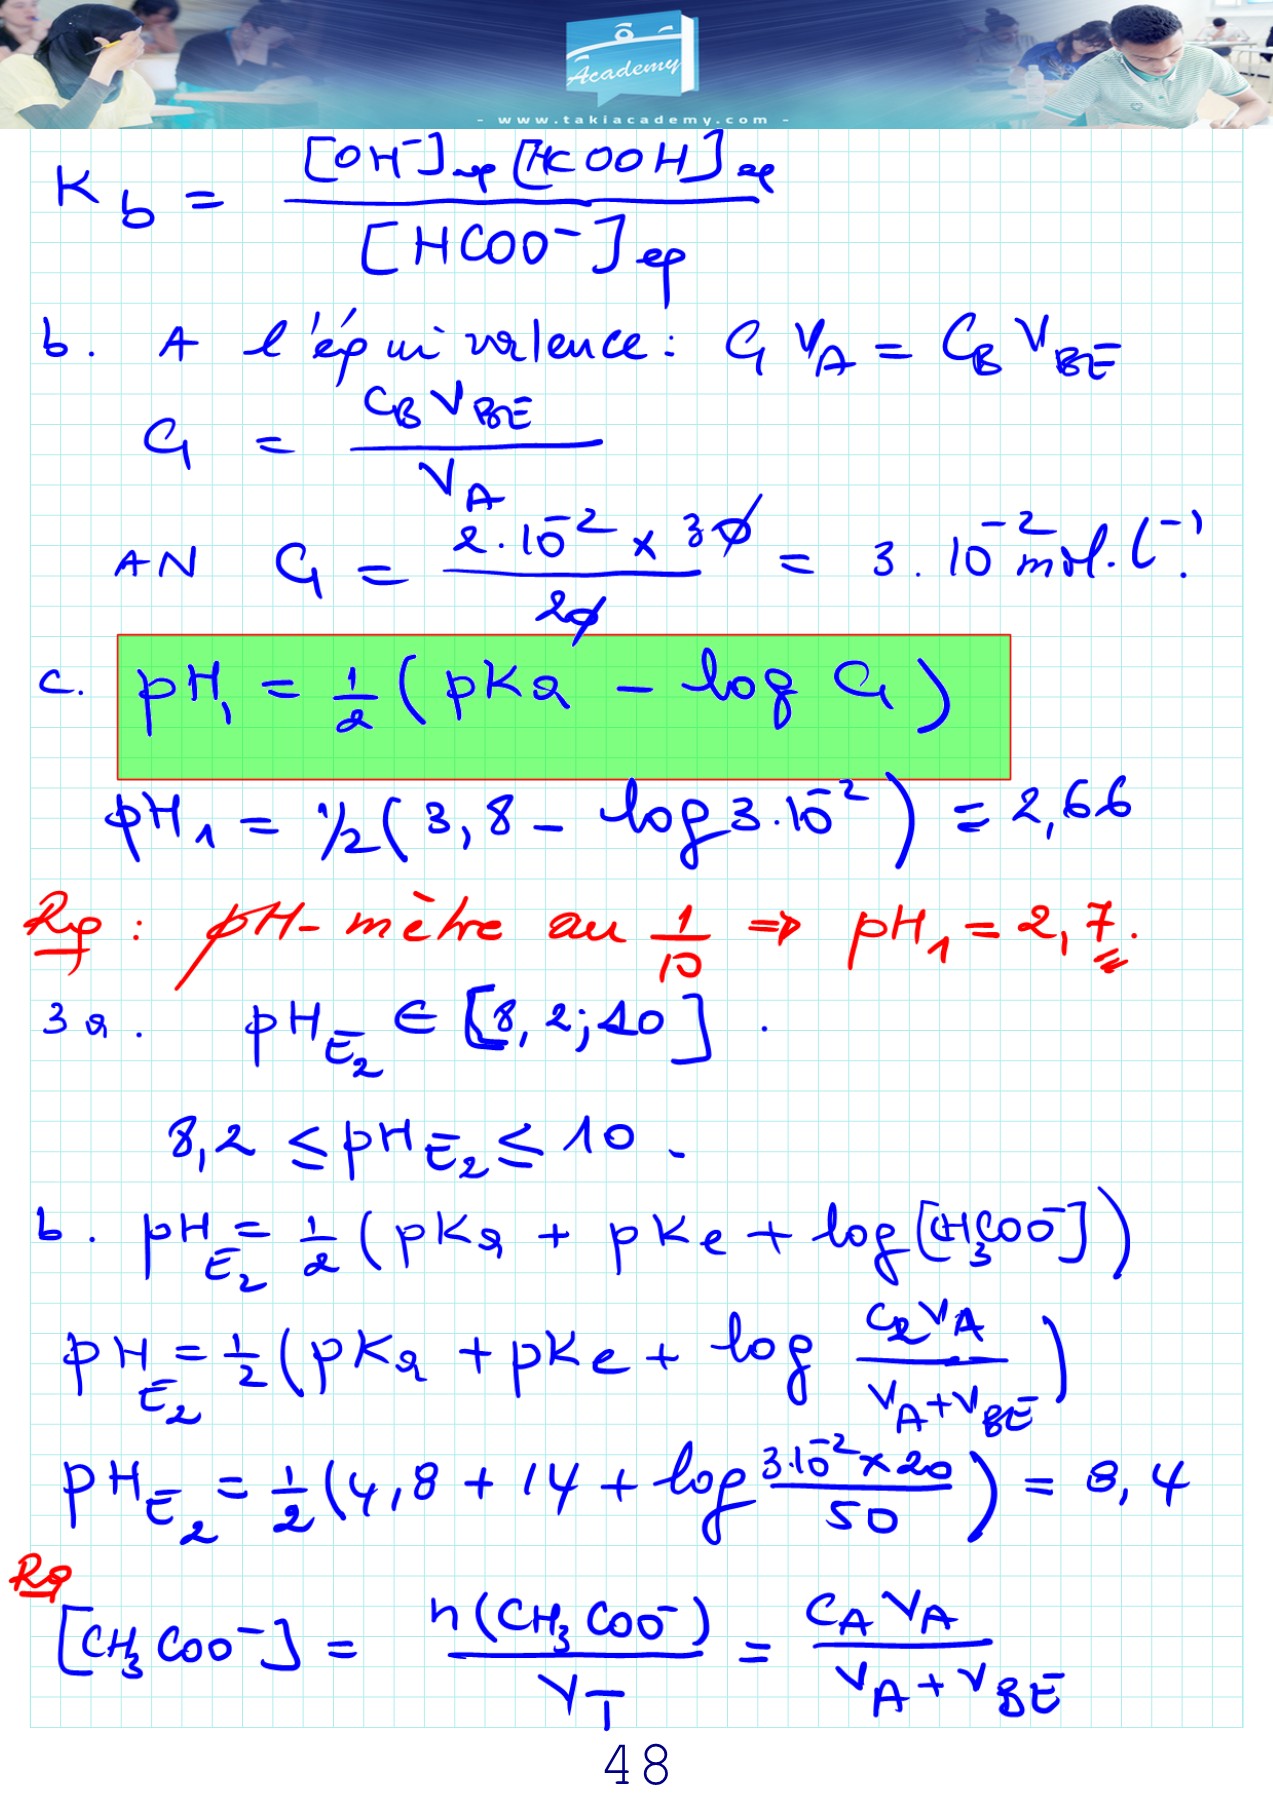 Academy
- www.takiacademy.com -
Kb = [OH⁻]ep [HCOOH]ep / [HCOO⁻]ep
b. A l'équivalence : C1 VA = CB VBE
C1 = CB VBE / VA
AN C1 = 2.10⁻² x 30 / 20 = 3.10⁻² mol.l⁻¹.
c. pH1 = 1/2 (pKa - log C1)
pH1 = 1/2 (3,8 - log 3.10⁻²) = 2,66
Rq : pH-mètre au 1/10 ⇒ pH1 = 2,7.
3 a. pHE2 ∈ [8,2 ; 10].
8,2 ≤ pHE2 ≤ 10.
b. pHE2 = 1/2 (pKa + pKe + log [CH3COO⁻])
pHE2 = 1/2 (pKa + pKe + log C2 VA / VA + VBE)
pHE2 = 1/2 (4,8 + 14 + log 3.10⁻² x 20 / 50) = 8,4
Rq
[CH3COO⁻] = n(CH3COO⁻) / VT = CA VA / VA + VBE
48